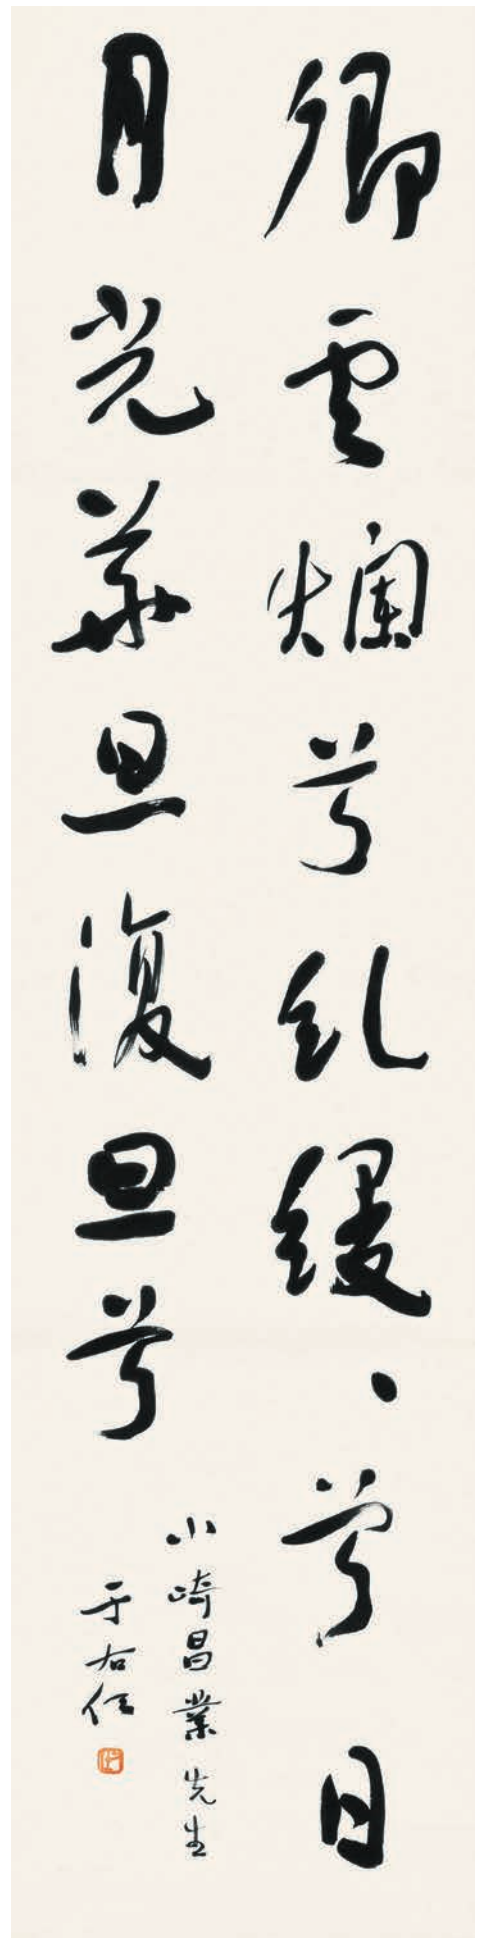 卿雲爛兮糺縵、兮日
月光華旦復旦兮
小崎昌業先生
于右任